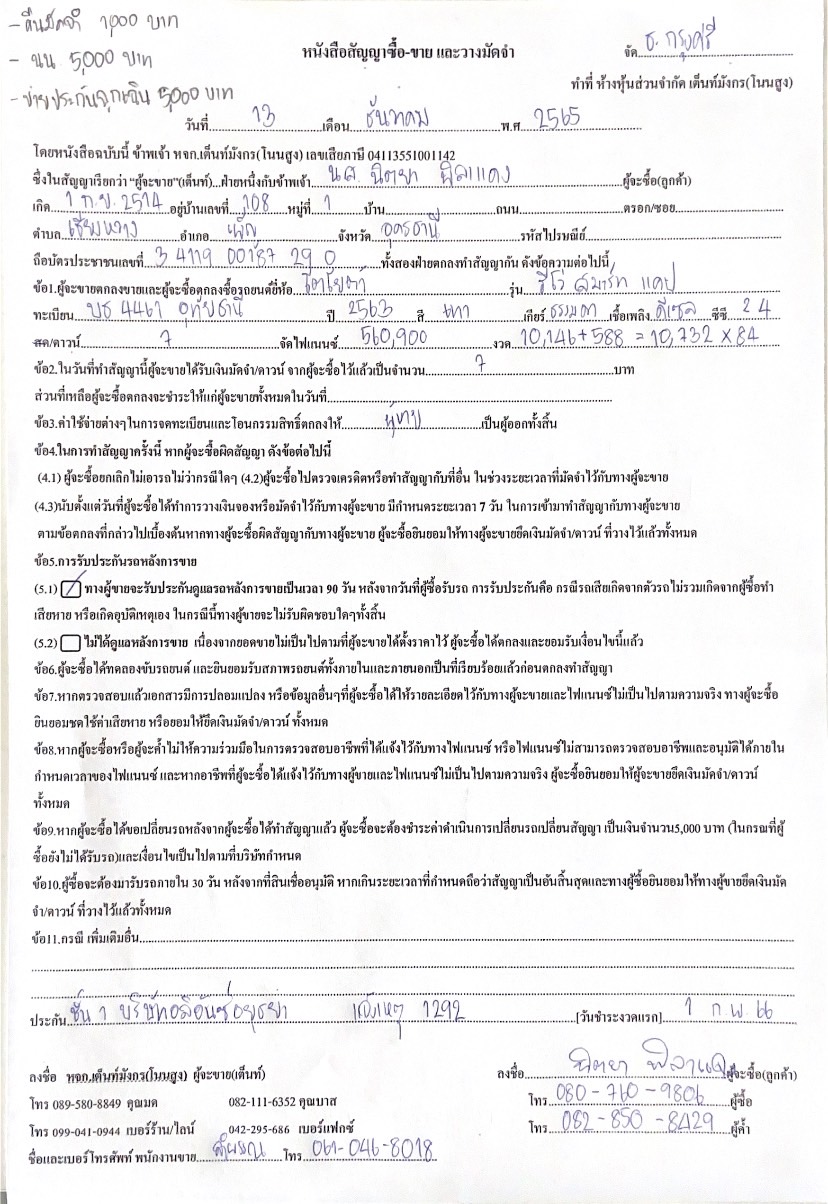 - คืนมัดจำ 1,000 บาท
- นน 5,000 บาท
- จ่ายประกันฉุกเฉิน 5,000 บาท
หนังสือสัญญาซื้อ-ขาย และวางมัดจำ
จัด ธ. กรุงศรี
ทำที่ ห้างหุ้นส่วนจำกัด เต็นท์มังกร(โนนสูง)
วันที่ 13 เดือน ธันวาคม พ.ศ 2565
โดยหนังสือฉบับนี้ ข้าพเจ้า หจก.เต็นท์มังกร(โนนสูง) เลขเสียภาษี 04113551001142
ซึ่งในสัญญาเรียกว่า "ผู้จะขาย"(เต็นท์)...ฝ่ายหนึ่งกับข้าพเจ้า น.ส. นิตยา พิลาแดง ผู้จะซื้อ(ลูกค้า)
เกิด 1 ก.ย. 2514 อยู่บ้านเลขที่ 108 หมู่ที่ 1 บ้าน ถนน ตรอก/ซอย
ตำบล เชียงหวาง อำเภอ เพ็ญ จังหวัด อุดรธานี รหัสไปรษณีย์
ถือบัตรประชาชนเลขที่ 3 4119 00187 29 0 ทั้งสองฝ่ายตกลงทำสัญญากัน ดังข้อความต่อไปนี้
ข้อ1.ผู้จะขายตกลงขายและผู้จะซื้อตกลงซื้อรถยนต์ยี่ห้อ โตโยต้า รุ่น รีโว่ สมาร์ท แคป
ทะเบียน บธ 4461 อุทัยธานี ปี 2563 สี เทา เกียร์ ธรรมดา เชื้อเพลิง ดีเซล ซีซี 2.4
สด/ดาวน์ 7 จัดไฟแนนซ์ 560,900 งวด 10,146+588 = 10,732 x 84
ข้อ2.ในวันที่ทำสัญญานี้ผู้จะขายได้รับเงินมัดจำ/ดาวน์ จากผู้จะซื้อไว้แล้วเป็นจำนวน 7 บาท
ส่วนที่เหลือผู้จะซื้อตกลงจะชำระให้แก่ผู้จะขายทั้งหมดในวันที่
ข้อ3.ค่าใช้จ่ายต่างๆในการจดทะเบียนและโอนกรรมสิทธิ์ตกลงให้ ผู้ขาย เป็นผู้ออกทั้งสิ้น
ข้อ4.ในการทำสัญญาครั้งนี้ หากผู้จะซื้อผิดสัญญา ดังข้อต่อไปนี้
(4.1) ผู้จะซื้อยกเลิกไม่เอารถไม่ว่ากรณีใดๆ (4.2)ผู้จะซื้อไปตรวจเครดิตหรือทำสัญญากับที่อื่น ในช่วงระยะเวลาที่มัดจำไว้กับทางผู้จะขาย
(4.3)นับตั้งแต่วันที่ผู้จะซื้อได้ทำการวางเงินจองหรือมัดจำไว้กับทางผู้จะขาย มีกำหนดระยะเวลา 7 วัน ในการเข้ามาทำสัญญากับทางผู้จะขาย
ตามข้อตกลงที่กล่าวไปเบื้องต้นหากทางผู้จะซื้อผิดสัญญากับทางผู้จะขาย ผู้จะซื้อยินยอมให้ทางผู้จะขายยึดเงินมัดจำ/ดาวน์ ที่วางไว้แล้วทั้งหมด
ข้อ5.การรับประกันรถหลังการขาย
(5.1) ทางผู้ขายจะรับประกันดูแลรถหลังการขายเป็นเวลา 90 วัน หลังจากวันที่ผู้ซื้อรับรถ การรับประกันคือ กรณีรถเสียเกิดจากตัวรถไม่รวมเกิดจากผู้ซื้อทำ
เสียหาย หรือเกิดอุบัติเหตุเอง ในกรณีนี้ทางผู้ขายจะไม่รับผิดชอบใดๆทั้งสิ้น
(5.2) ไม่ได้ดูแลหลังการขาย เนื่องจากยอดขายไม่เป็นไปตามที่ผู้จะขายได้ตั้งราคาไว้ ผู้จะซื้อได้ตกลงและยอมรับเงื่อนไขนี้แล้ว
ข้อ6.ผู้จะซื้อได้ทดลองขับรถยนต์ และยินยอมรับสภาพรถยนต์ทั้งภายในและภายนอกเป็นที่เรียบร้อยแล้วก่อนตกลงทำสัญญา
ข้อ7.หากตรวจสอบแล้วเอกสารมีการปลอมแปลง หรือข้อมูลอื่นๆที่ผู้จะซื้อได้ให้รายละเอียดไว้กับทางผู้จะขายและไฟแนนซ์ไม่เป็นไปตามความจริง ทางผู้จะซื้อ
ยินยอมชดใช้ค่าเสียหาย หรือยอมให้ยึดเงินมัดจำ/ดาวน์ ทั้งหมด
ข้อ8.หากผู้จะซื้อหรือผู้จะค้ำไม่ให้ความร่วมมือในการตรวจสอบอาชีพที่ได้แจ้งไว้กับทางไฟแนนซ์ หรือไฟแนนซ์ไม่สามารถตรวจสอบอาชีพและอนุมัติได้ภายใน
กำหนดเวลาของไฟแนนซ์ และหากอาชีพที่ผู้จะซื้อได้แจ้งไว้กับทางผู้ขายและไฟแนนซ์ไม่เป็นไปตามความจริง ผู้จะซื้อยินยอมให้ผู้จะขายยึดเงินมัดจำ/ดาวน์
ทั้งหมด
ข้อ9.หากผู้จะซื้อได้ขอเปลี่ยนรถหลังจากผู้จะซื้อได้ทำสัญญาแล้ว ผู้จะซื้อจะต้องชำระค่าดำเนินการเปลี่ยนรถเปลี่ยนสัญญา เป็นเงินจำนวน5,000 บาท (ในกรณที่ผู้
ซื้อยังไม่ได้รับรถ)และเงื่อนไขเป็นไปตามที่บริษัทกำหนด
ข้อ10.ผู้ซื้อจะต้องมารับรถภายใน 30 วัน หลังจากที่สินเชื่ออนุมัติ หากเกินระยะเวลาที่กำหนดถือว่าสัญญาเป็นอันสิ้นสุดและทางผู้ซื้อยินยอมให้ทางผู้ขายยึดเงินมัด
จำ/ดาวน์ ที่วางไว้แล้วทั้งหมด
ข้อ11.กรณี เพิ่มเติมอื่น
ประกัน ชั้น 1 บริษัทอลิอันซ์อยุธยา แจ้งเหตุ 1292 [วันชำระงวดแรก] 1 ก.พ 66
ลงชื่อ หจก.เต็นท์มังกร(โนนสูง) ผู้จะขาย(เต็นท์)
ลงชื่อ นิตยา พิลาแดง ผู้จะซื้อ(ลูกค้า)
โทร 089-580-8849 คุณมด 082-111-6352 คุณบาส
โทร 080-710-9806 ผู้ซื้อ
โทร 099-041-0944 เบอร์ร้าน/ไลน์ 042-295-686 เบอร์แฟกซ์
โทร 082-850-8429 ผู้ค้ำ
ชื่อและเบอร์โทรศัพท์ พนักงานขาย โทร 061-046-8018